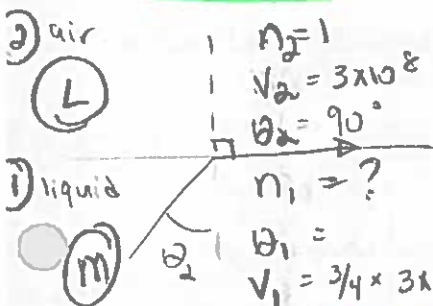 ② air
n₂ = 1
L
v₂ = 3×10⁸
θ₂ = 90°
① liquid
n₁ = ?
m
θ₂
θ₁ =
v₁ = 3/4 × 3×